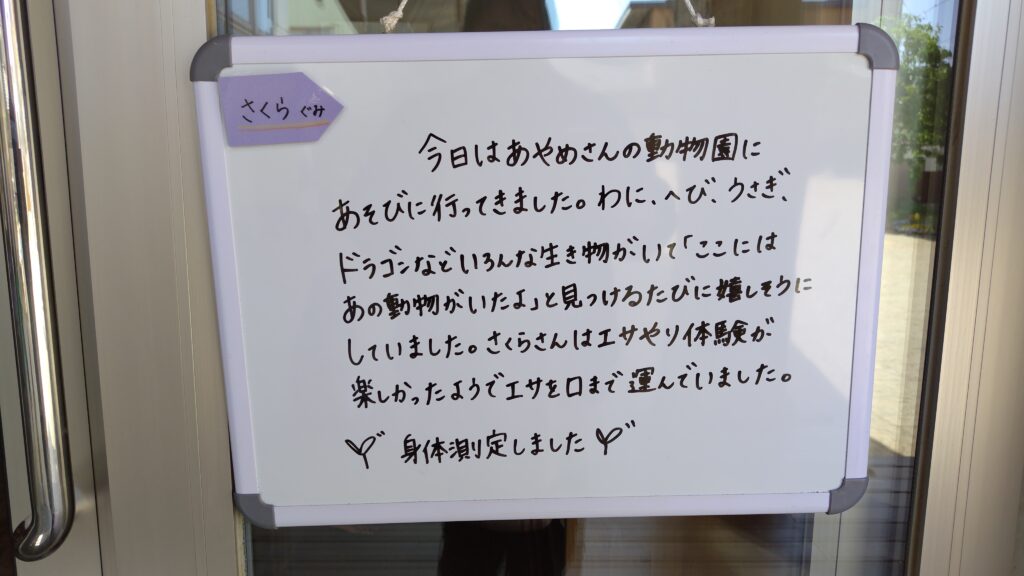 さくら ぐみ
今日はあやめさんの動物園に
あそびに行ってきました。わに、へび、うさぎ、
ドラゴンなどいろんな生き物がいて「ここには
あの動物がいたよ」と見つけるたびに嬉しそうに
していました。さくらさんはエサやり体験が
楽しかったようでエサを口まで運んでいました。
身体測定しました